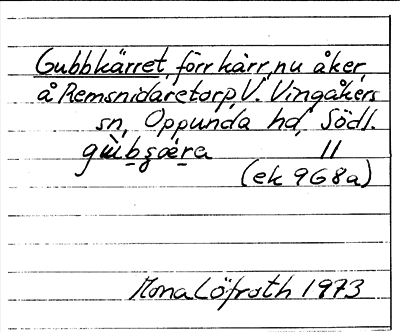 Gubbkärret, förr kärr, nu åker,
å Remsnidaretorp, V. Vingåkers
sn, Oppunda hd, Södl.
11
(ek 9G8a)
Mona Löfroth 1973